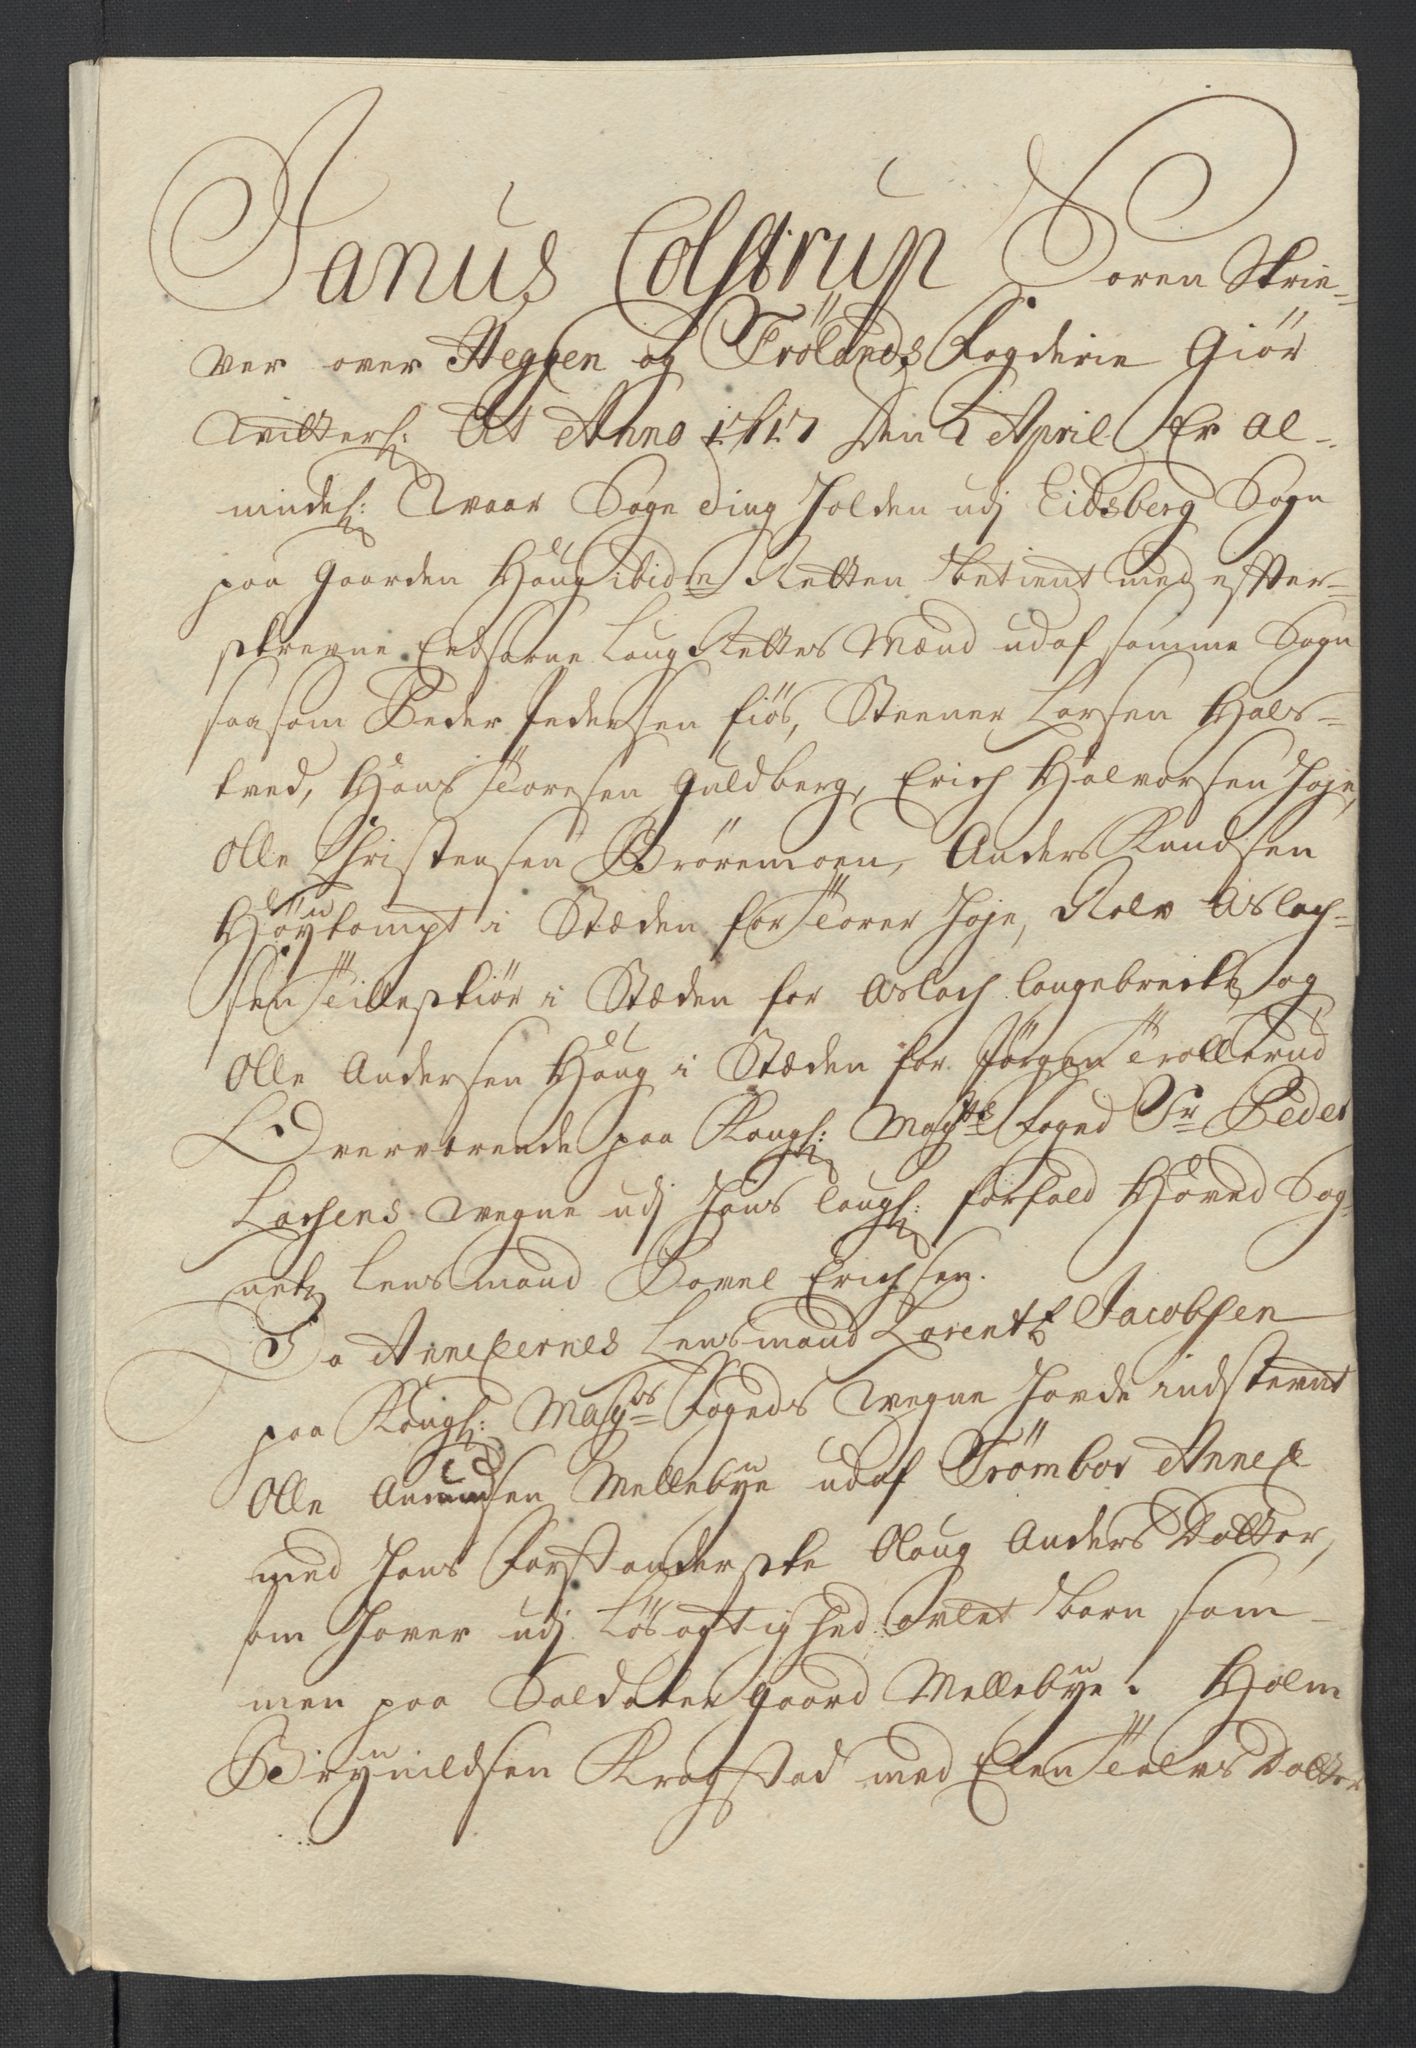 Janus Colstrup Soren Skrie-
ver over Heggen og Frölands Fogderie Giör
Vitterl: At Anno 1717 den 2 April Er al-
mindel: Vaar Sage ding holden udj Eidsberg Sogn
paa Gaarden Haug ibidm Retten betient med effter-
skrevne Eedsorne Laug Rettes Mænd udaf samme Sogn
saasom Peder Pedersen fiös, Steener Larsen Hals-
tved, Hans Toresen Guldberg, Erich Halvorsen Hoje,
Olle Christensen Bröremoen, Anders Knudsen
Höytompt i Stæden for Torer Hoje, Rolv Aslach-
sen Tilleskiör i Stæden for Aslach Langebrecke og
Olle Andersen Haug i Stæden for Jörgen Trollerud
Overværende paa Kongl: Maytz foged Sr Peder
Lachsens vegne udj hans laugl: forfald Hoved Sog-
netz Lensmand Povel Erichsen.
Da Annexernes Lensmand Lorentz Jacobsen
paa Kongl: Mays Fogeds vegne hafde indstevnt
Olle Amundsen Mellebye udaf Trömbor Annex
med hans forstanderske Olaug Anders Datter,
som haver udj Lösagtighed avlet barn sam-
men paa Soldater gaard Mellebye. Holm
Bryniildsen Kragstad med Elen Tolvs Datter